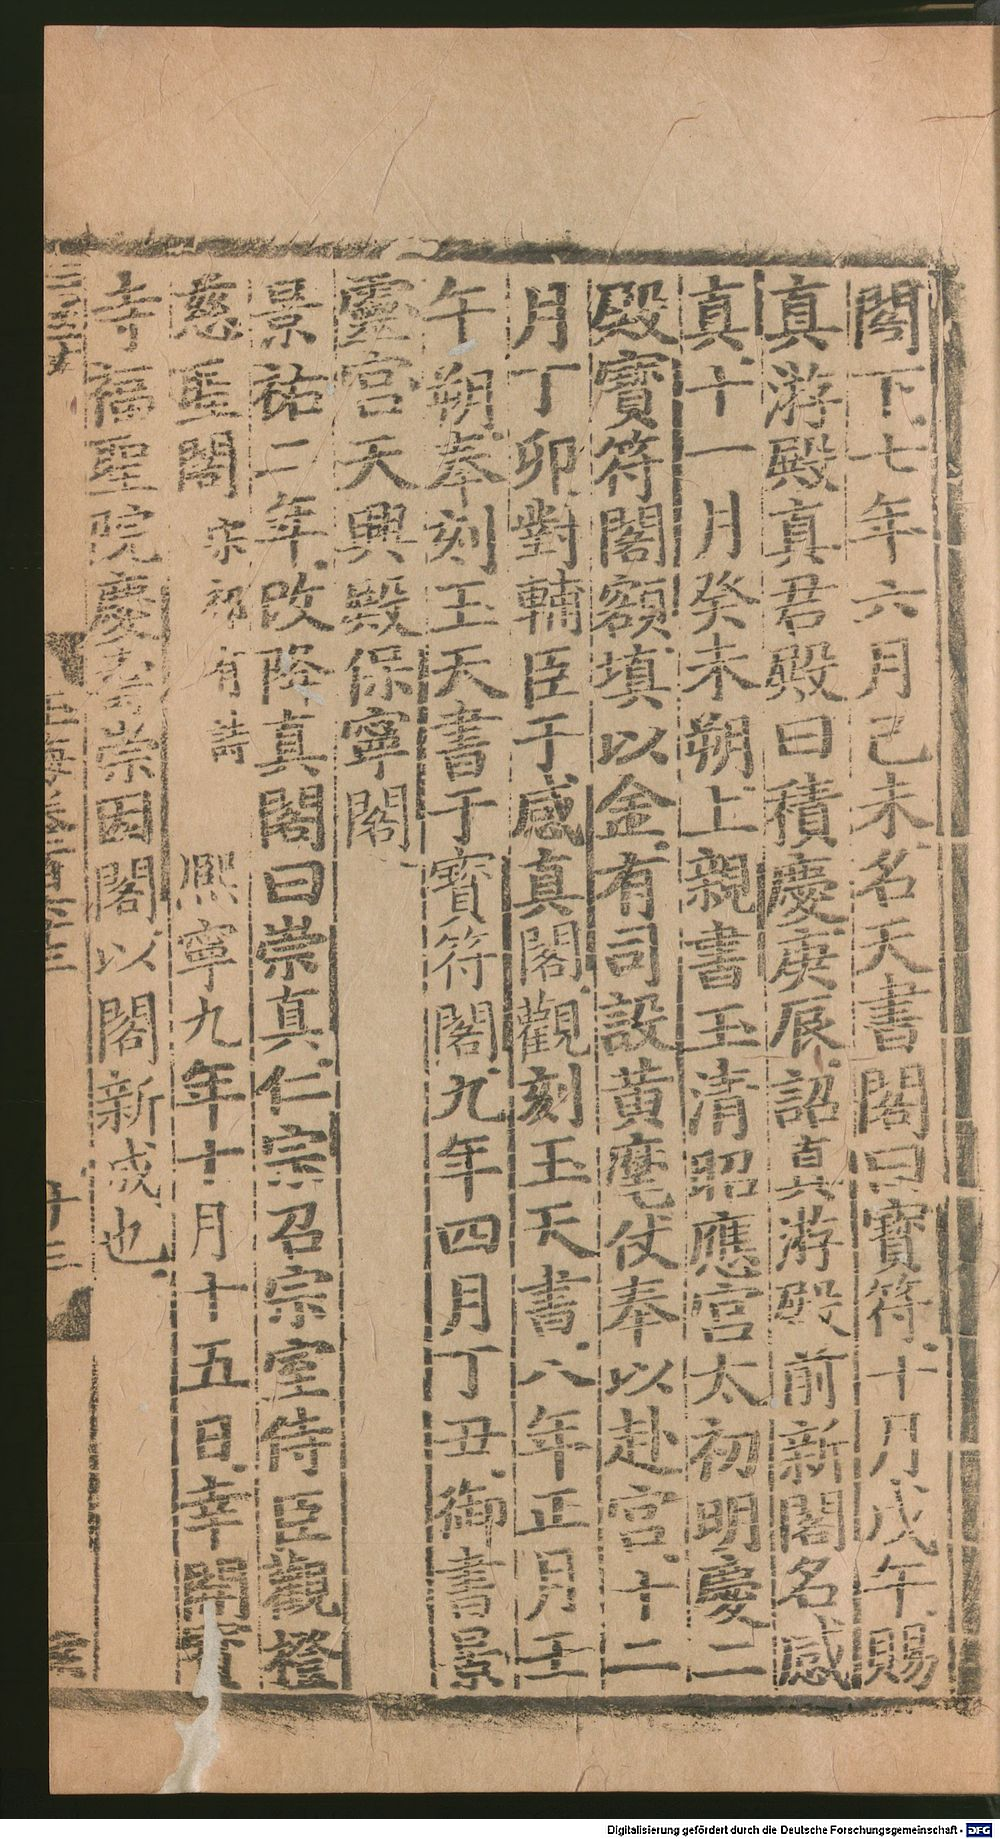 閣下七年六月己未名天書閣曰寶符十月戊午賜
真游殿真君殿曰積慶庚辰詔真游殿前新閣名感
真十一月癸未朔上親書玉清昭應宮太初明慶二
殿寶符閣額填以金有司設黃麾仗奉以赴宮十二
月丁卯對輔臣于感真閣觀刻玉天書八年正月壬
午朔奉刻玉天書于寶符閣九年四月丁丑御書景
靈宮天興殿保寧閣
景祐二年改降真閣曰崇真仁宗召宗室侍臣觀橙
慈聖閣 宋祁有詩 熙寧九年十月十五日幸開寶
寺福聖院慶壽崇因閣以閣新成也
玉海卷百六十三
十三
Digitalisierung gefördert durch die Deutsche Forschungsgemeinschaft - DFG